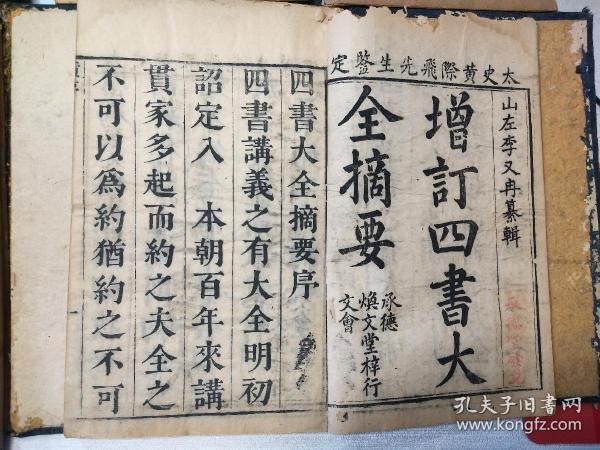 太史黃際飛先生鑒定
山左李又冉纂輯
增訂四書大
全摘要
承德
煥文堂梓行
文會
四書大全摘要序
四書講義之有大全明初
詔定入　本朝百年來講
貫家多起而約之夫全之
不可以為約猶約之不可
孔夫子旧书网
www.kongfz.com